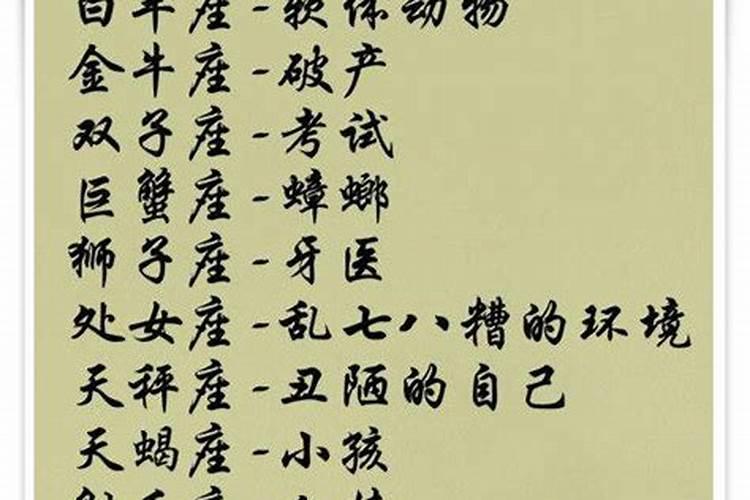 白羊座-软体动物
金牛座-破产
双子座-考试
巨蟹座-蟑螂
狮子座-牙医
处女座-乱七八糟的环境
天秤座-丑陋的自己
天蝎座-小孩